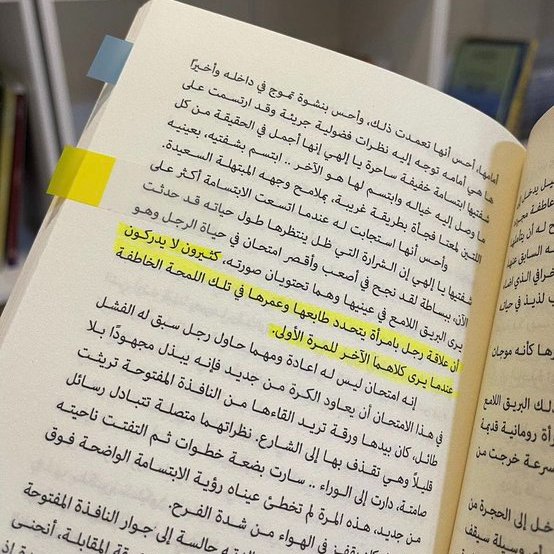 أمامها، أحس أنها تعمدت ذلك، وأحس بنشوة تموج في داخله وأخيرًا
ها هي أمامه توجه إليه نظرات فضولية جريئة وقد ارتسمت على
شفتيها ابتسامة خفيفة ساحرة يا إلهي إنها أجمل في الحقيقة من كل
ما وصل إليه خياله وابتسم لها هو الآخر .. ابتسم بشفتيه، بعينيه
اللتين لمعتا فجأة بطريقة غريبة، بملامح وجهه المبتهلة السعيدة.
وأحس أنها استجابت له عندما اتسعت الابتسامة أكثر على
شفتيها يا إلهي إن الشرارة التي ظل ينتظرها طول حياته قد حدثت
الآن، ببساطة لقد نجح في أصعب وأقصر امتحان في حياة الرجل وهو
يرى البريق اللامع في عينيها وهما تحتويان صورته، كثيرون لا يدركون
أن علاقة رجل بامرأة يتحدد طابعها وعمرها في تلك اللمحة الخاطفة
عندما يرى كلاهما الآخر للمرة الأولى.
إنه امتحان ليس له اعادة ومهما حاول رجل سبق له الفشل
في هذا الامتحان أن يعاود الكرة من جديد فإنه يبذل مجهودًا بلا
طائل، كان بيدها ورقة تريد القاءها من النافذة المفتوحة تريثت
قليلًا وهي تقذف بها إلى الشارع. نظراتهما متصلة تتبادل رسائل
صامتة، دارت إلى الوراء .. سارت بضعة خطوات ثم التفتت ناحيته
من جديد، هذه المرة لم تخطئ عيناه رؤية الابتسامة الواضحة فوق
في الهواء من شدة الفرح.
حالسة إلى جوار النافذة المفتوحة
المقابلة، أنحنى